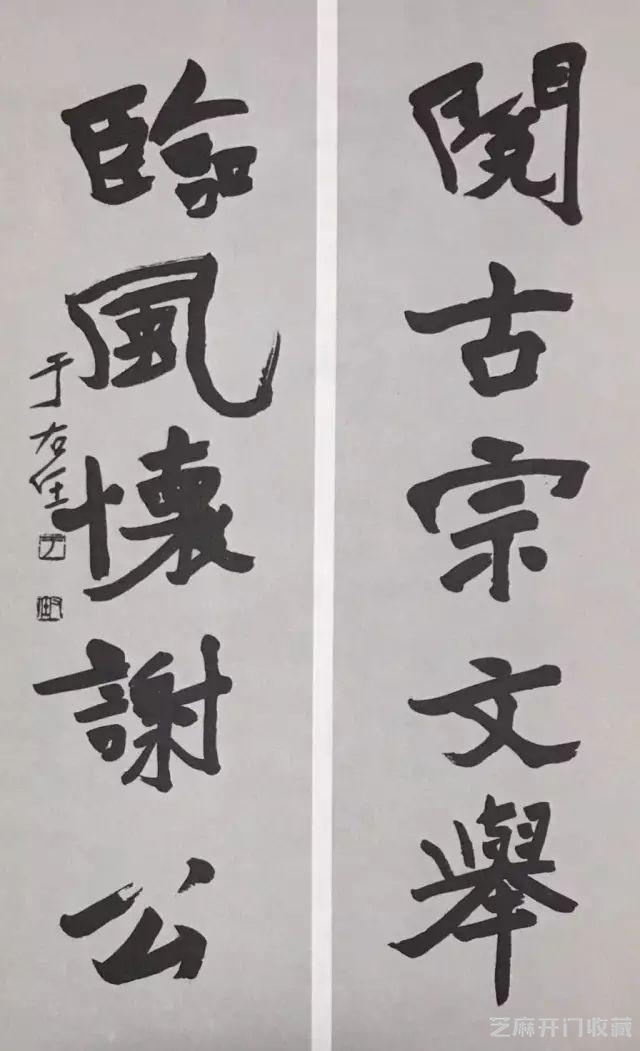 閲古宗文舉
臨風懷謝公
于右任
芝麻开门收藏